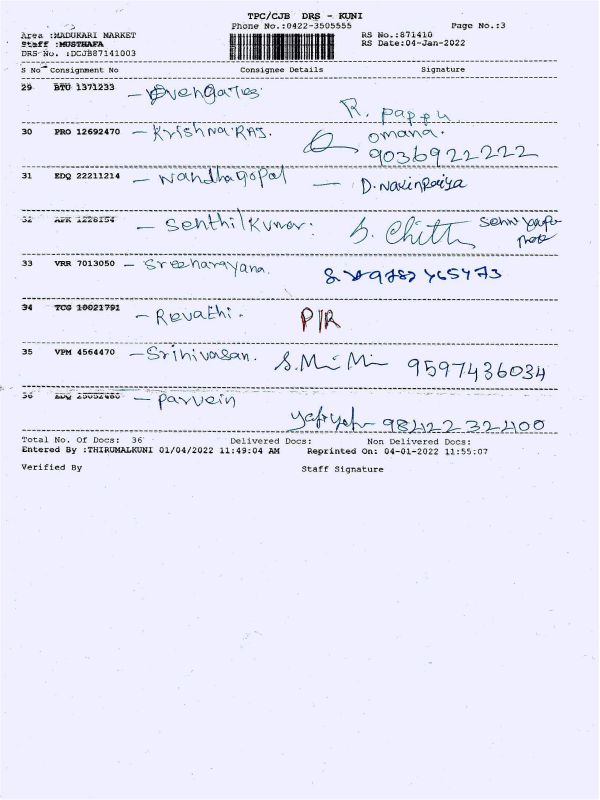 TPC/CJB DRS - KUNI
Phone No.:0422-3505555 Page No.:3
Area :MADUKARI MARKET RS No.:871410
Staff :MUSTHAFA RS Date:04-Jan-2022
DRS No. :DCJB87141003
S No Consignment No Consignee Details Signature
29 BTU 1371233 - Vengates
R. Pappu
30 PRO 12692470 - Krishna Raj. omana.
9036922222
31 EDQ 22211214 - Nandhagopal -
32 - Senthil Kumar: S. Chitth
33 VRR 7013050 - Sreenarayana.
34 TCG 10021791 - Revathi. P/R
35 VPM 4564470 - Srinivasan. 9597436034
36 - parvein
9842232400
Total No. Of Docs: 36 Delivered Docs: Non Delivered Docs:
Entered By :THIRUMALKUNI 01/04/2022 11:49:04 AM Reprinted On: 04-01-2022 11:55:07
Verified By Staff Signature